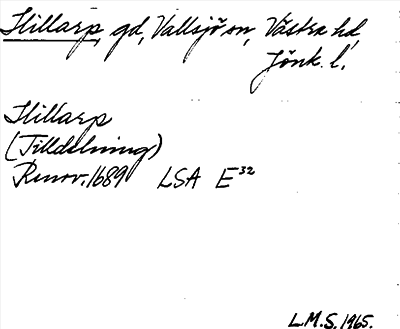 Hillarp, gd, Vallsjö sn, Västra hd,
Jönk. l.
Hillarp
(Tilldelning)
Renov. 1689 LSA E³²
L.M.S. 1965.